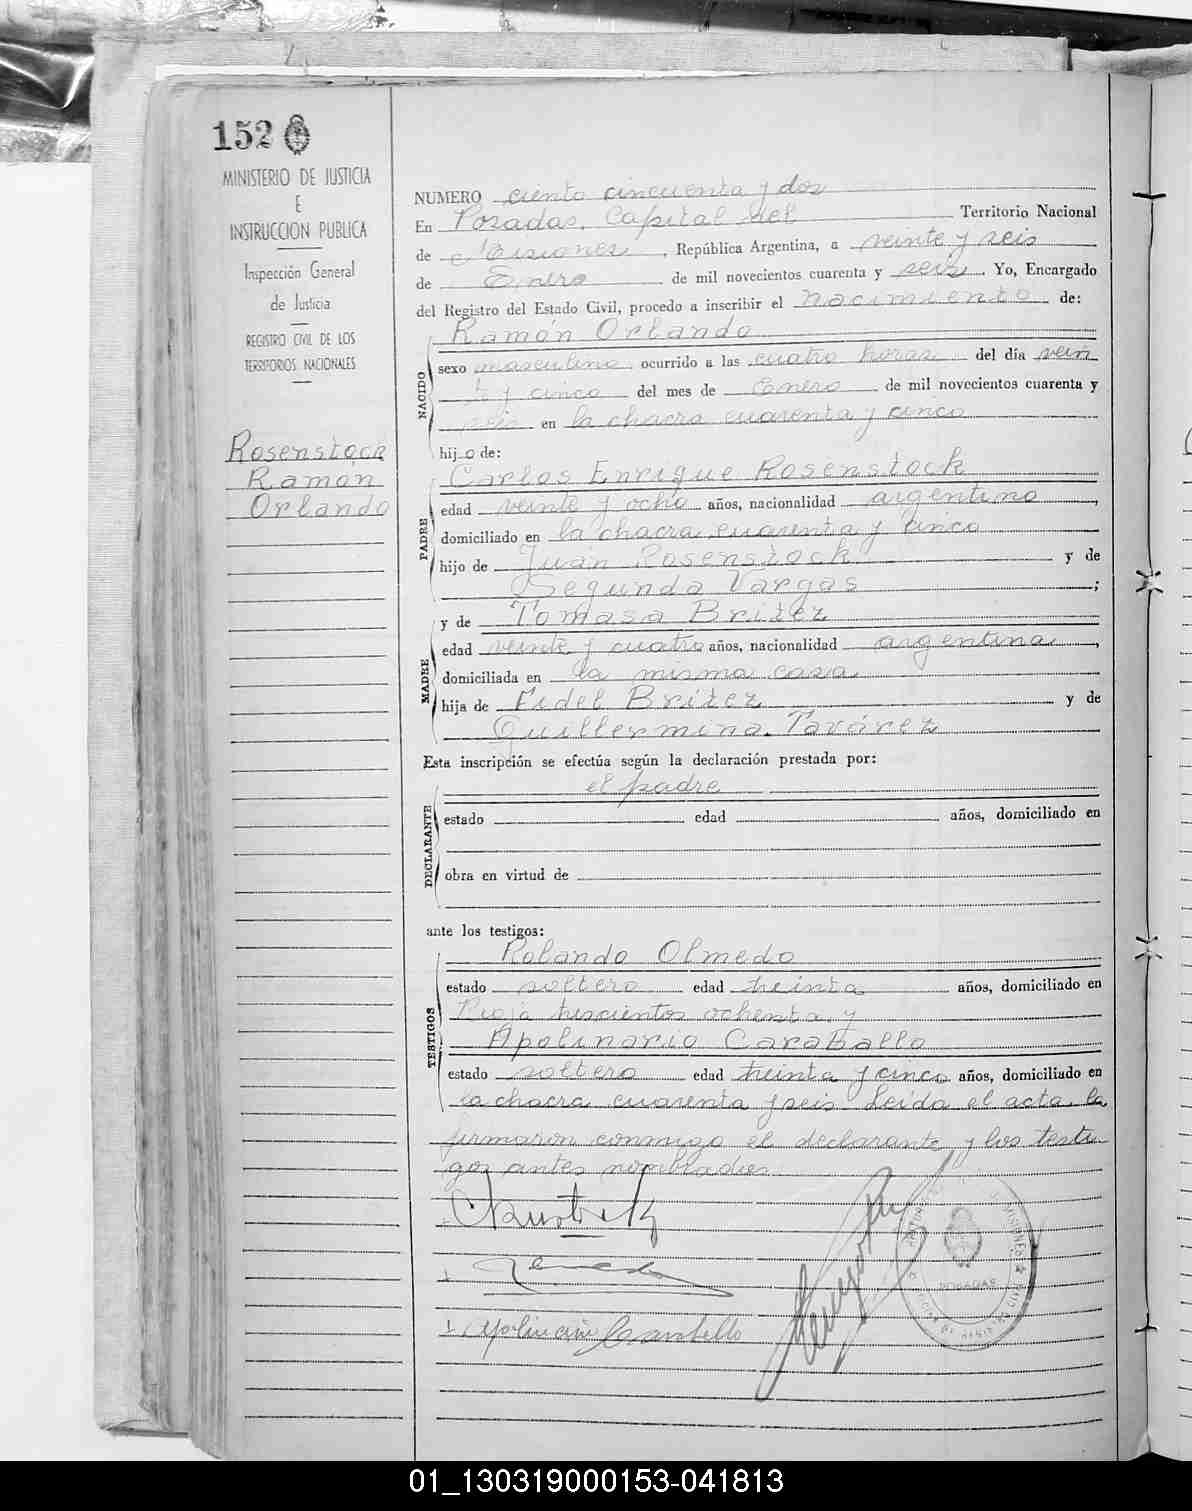 152
MINISTERIO DE JUSTICIA
E
INSTRUCCION PUBLICA
Inspección General
de Justicia
REGISTRO CIVIL DE LOS
TERRITORIOS NACIONALES
Rosenstock
Ramón
Orlando
NUMERO ciento cincuenta y dos
En Posadas, Capital del Territorio Nacional
de Misiones, República Argentina, a veinte y seis
de Enero de mil novecientos cuarenta y seis. Yo, Encargado
del Registro del Estado Civil, procedo a inscribir el nacimiento de:
NACIDO
Ramón Orlando
sexo masculino ocurrido a las cuatro horas del día vein
te y cinco del mes de Enero de mil novecientos cuarenta y
seis en la chacra cuarenta y cinco
hijo de:
PADRE
Carlos Enrique Rosenstock
edad veinte y ocho años, nacionalidad argentino,
domiciliado en la chacra cuarenta y cinco
hijo de Juan Rosenstock y de
Segunda Vargas;
y de Tomasa Britez
MADRE
edad veinte y cuatro años, nacionalidad argentina,
domiciliada en la misma casa
hija de Fidel Britez y de
Guillermina Tavárez
Esta inscripción se efectúa según la declaración prestada por:
el padre
DECLARANTE
estado edad años, domiciliado en
obra en virtud de
ante los testigos:
TESTIGOS
Rolando Olmedo
estado soltero edad treinta años, domiciliado en
Rioja trescientos ochenta y
Apolinario Caraballo
estado soltero edad treinta y cinco años, domiciliado en
la chacra cuarenta y seis. Leida el acta, la
firmaron conmigo el declarante y los testi-
gos antes nombrados
POSADAS
MISIONES
01_130319000153-041813